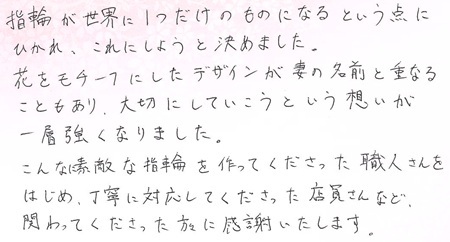 指輪が世界に1つだけのものになるという点に
ひかれ、これにしようと決めました。
花をモチーフにしたデザインが妻の名前と重なる
こともあり、大切にしていこうという想いが
一層強くなりました。
こんな素敵な指輪を作ってくださった職人さんを
はじめ、丁寧に対応してくださった店員さんなど、
関わってくださった方々に感謝いたします。